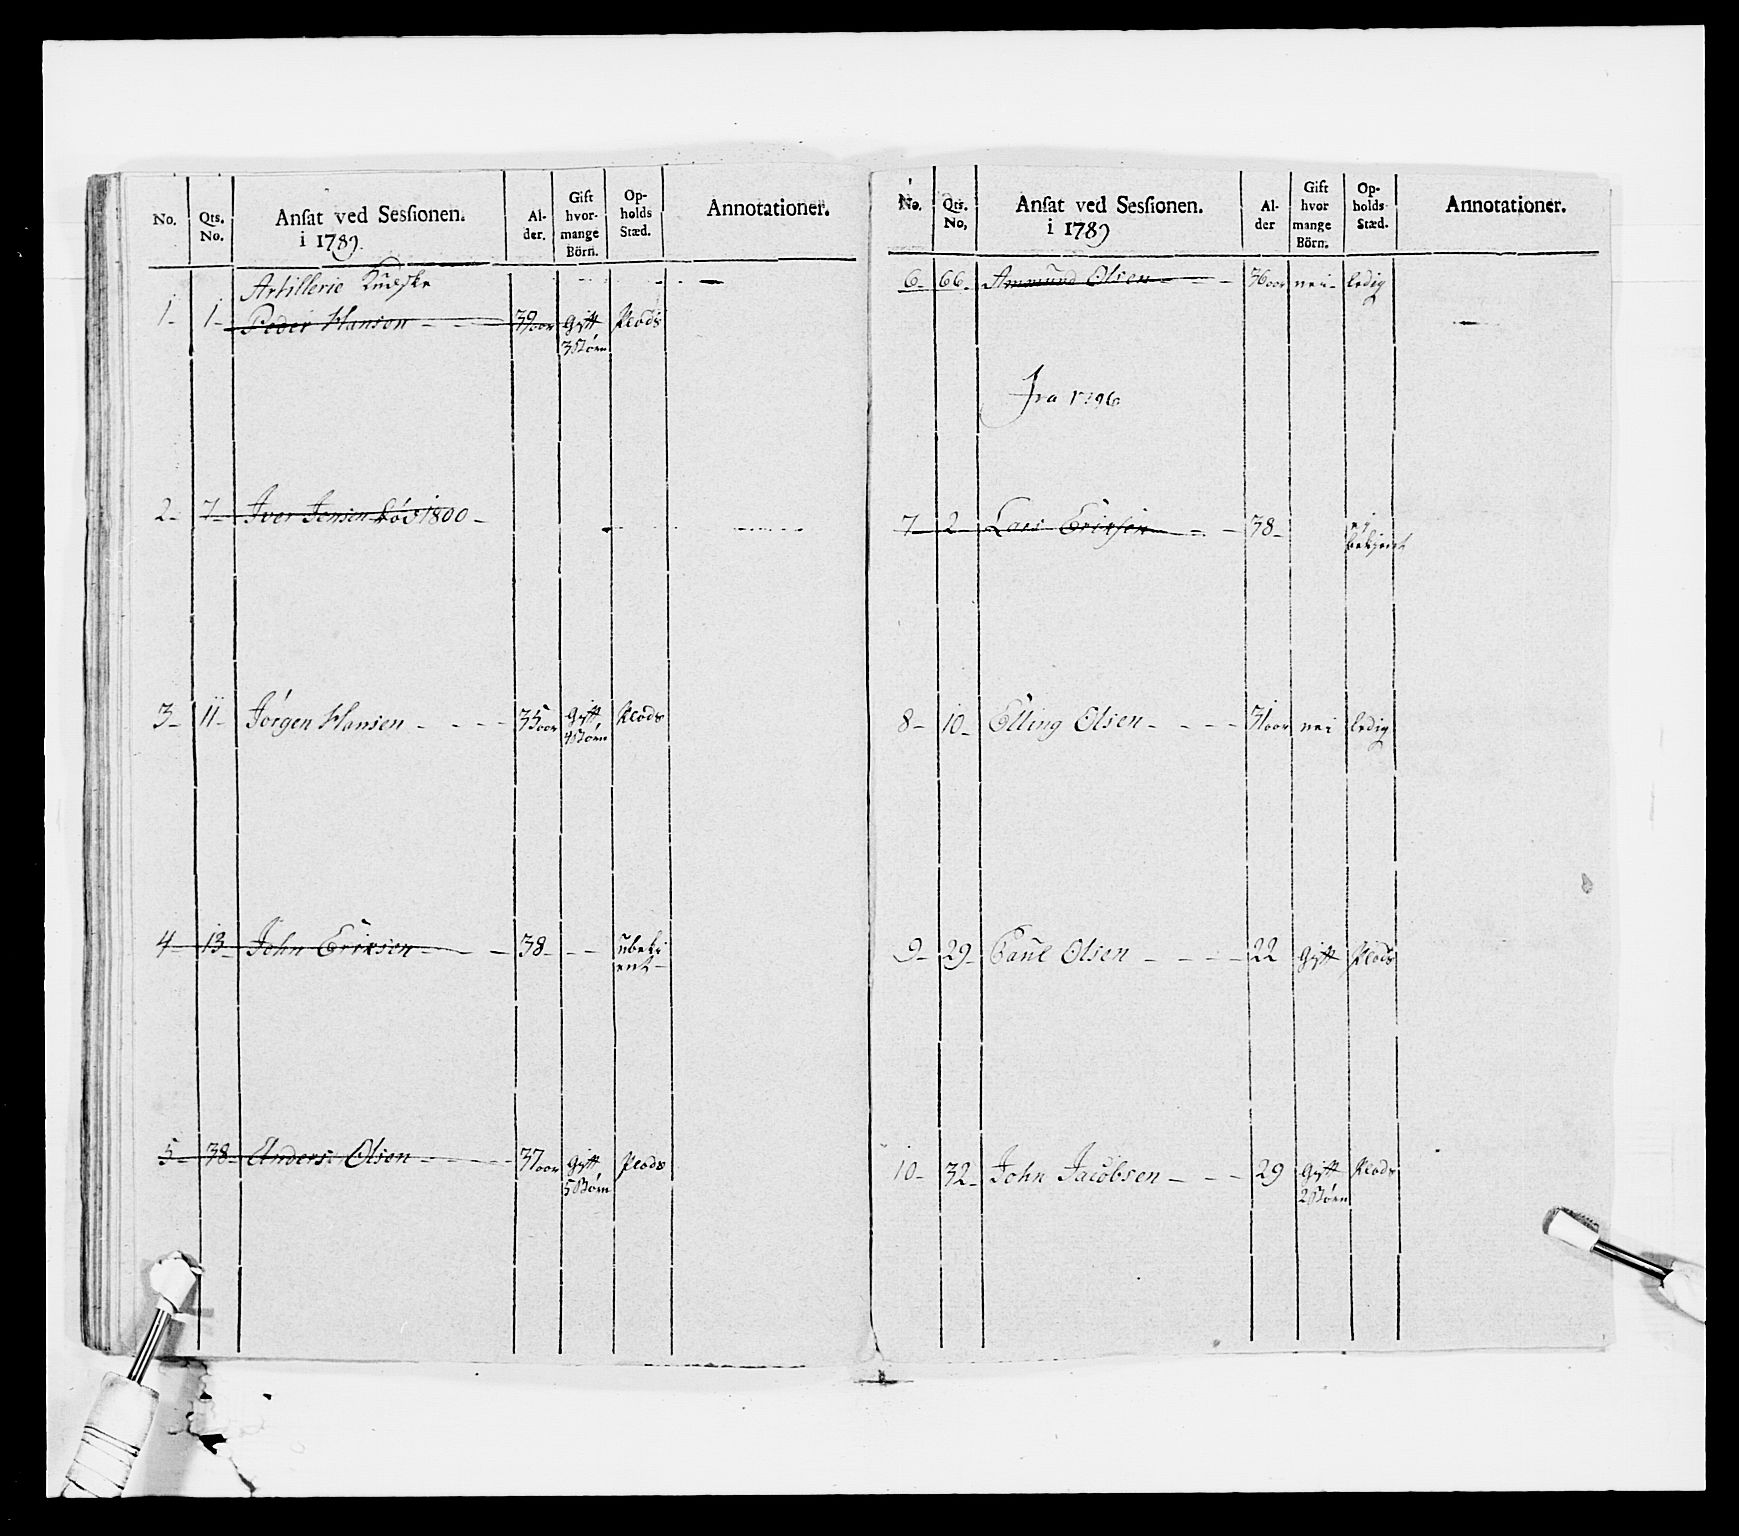 No. Qts. No. Ansat ved Sessionen. i 1789. Al-der. Gift hvor-mange Börn. Op-holds Stæd. Annotationer.
Artillerie Kudske
1- 1- Peder Hansen - - 39 aar Gift Plads
3 Børn
2- 7- Iver Jensen død 1800-
3- 11- Jørgen Hansen - - - - 35 aar Gift Plads
4 Børn
4- 13- John Erixsen - - - 38- - - ubekj
ent-
5- 38- Anders Olsen - - - - 37 aar Gift Plads
5 Børn
No. Qts. No, Ansat ved Sessionen. i 1789 Al-der Gift hvor mange Börn. Op-holds Stæd. Annotationer.
6- 66- Ammund Olsen - - - 36 aar nei- ledig
Fra 1796
7- 2- Lars Erixsen - - - 38-
8- 10- Elling Olsen - - - - 31 aar nei ledig
9- 29- Paul Olsen - - - - 22 Gift Plads
10- 32- John Jacobsen - - - 29 Gift Plads
2 Børn